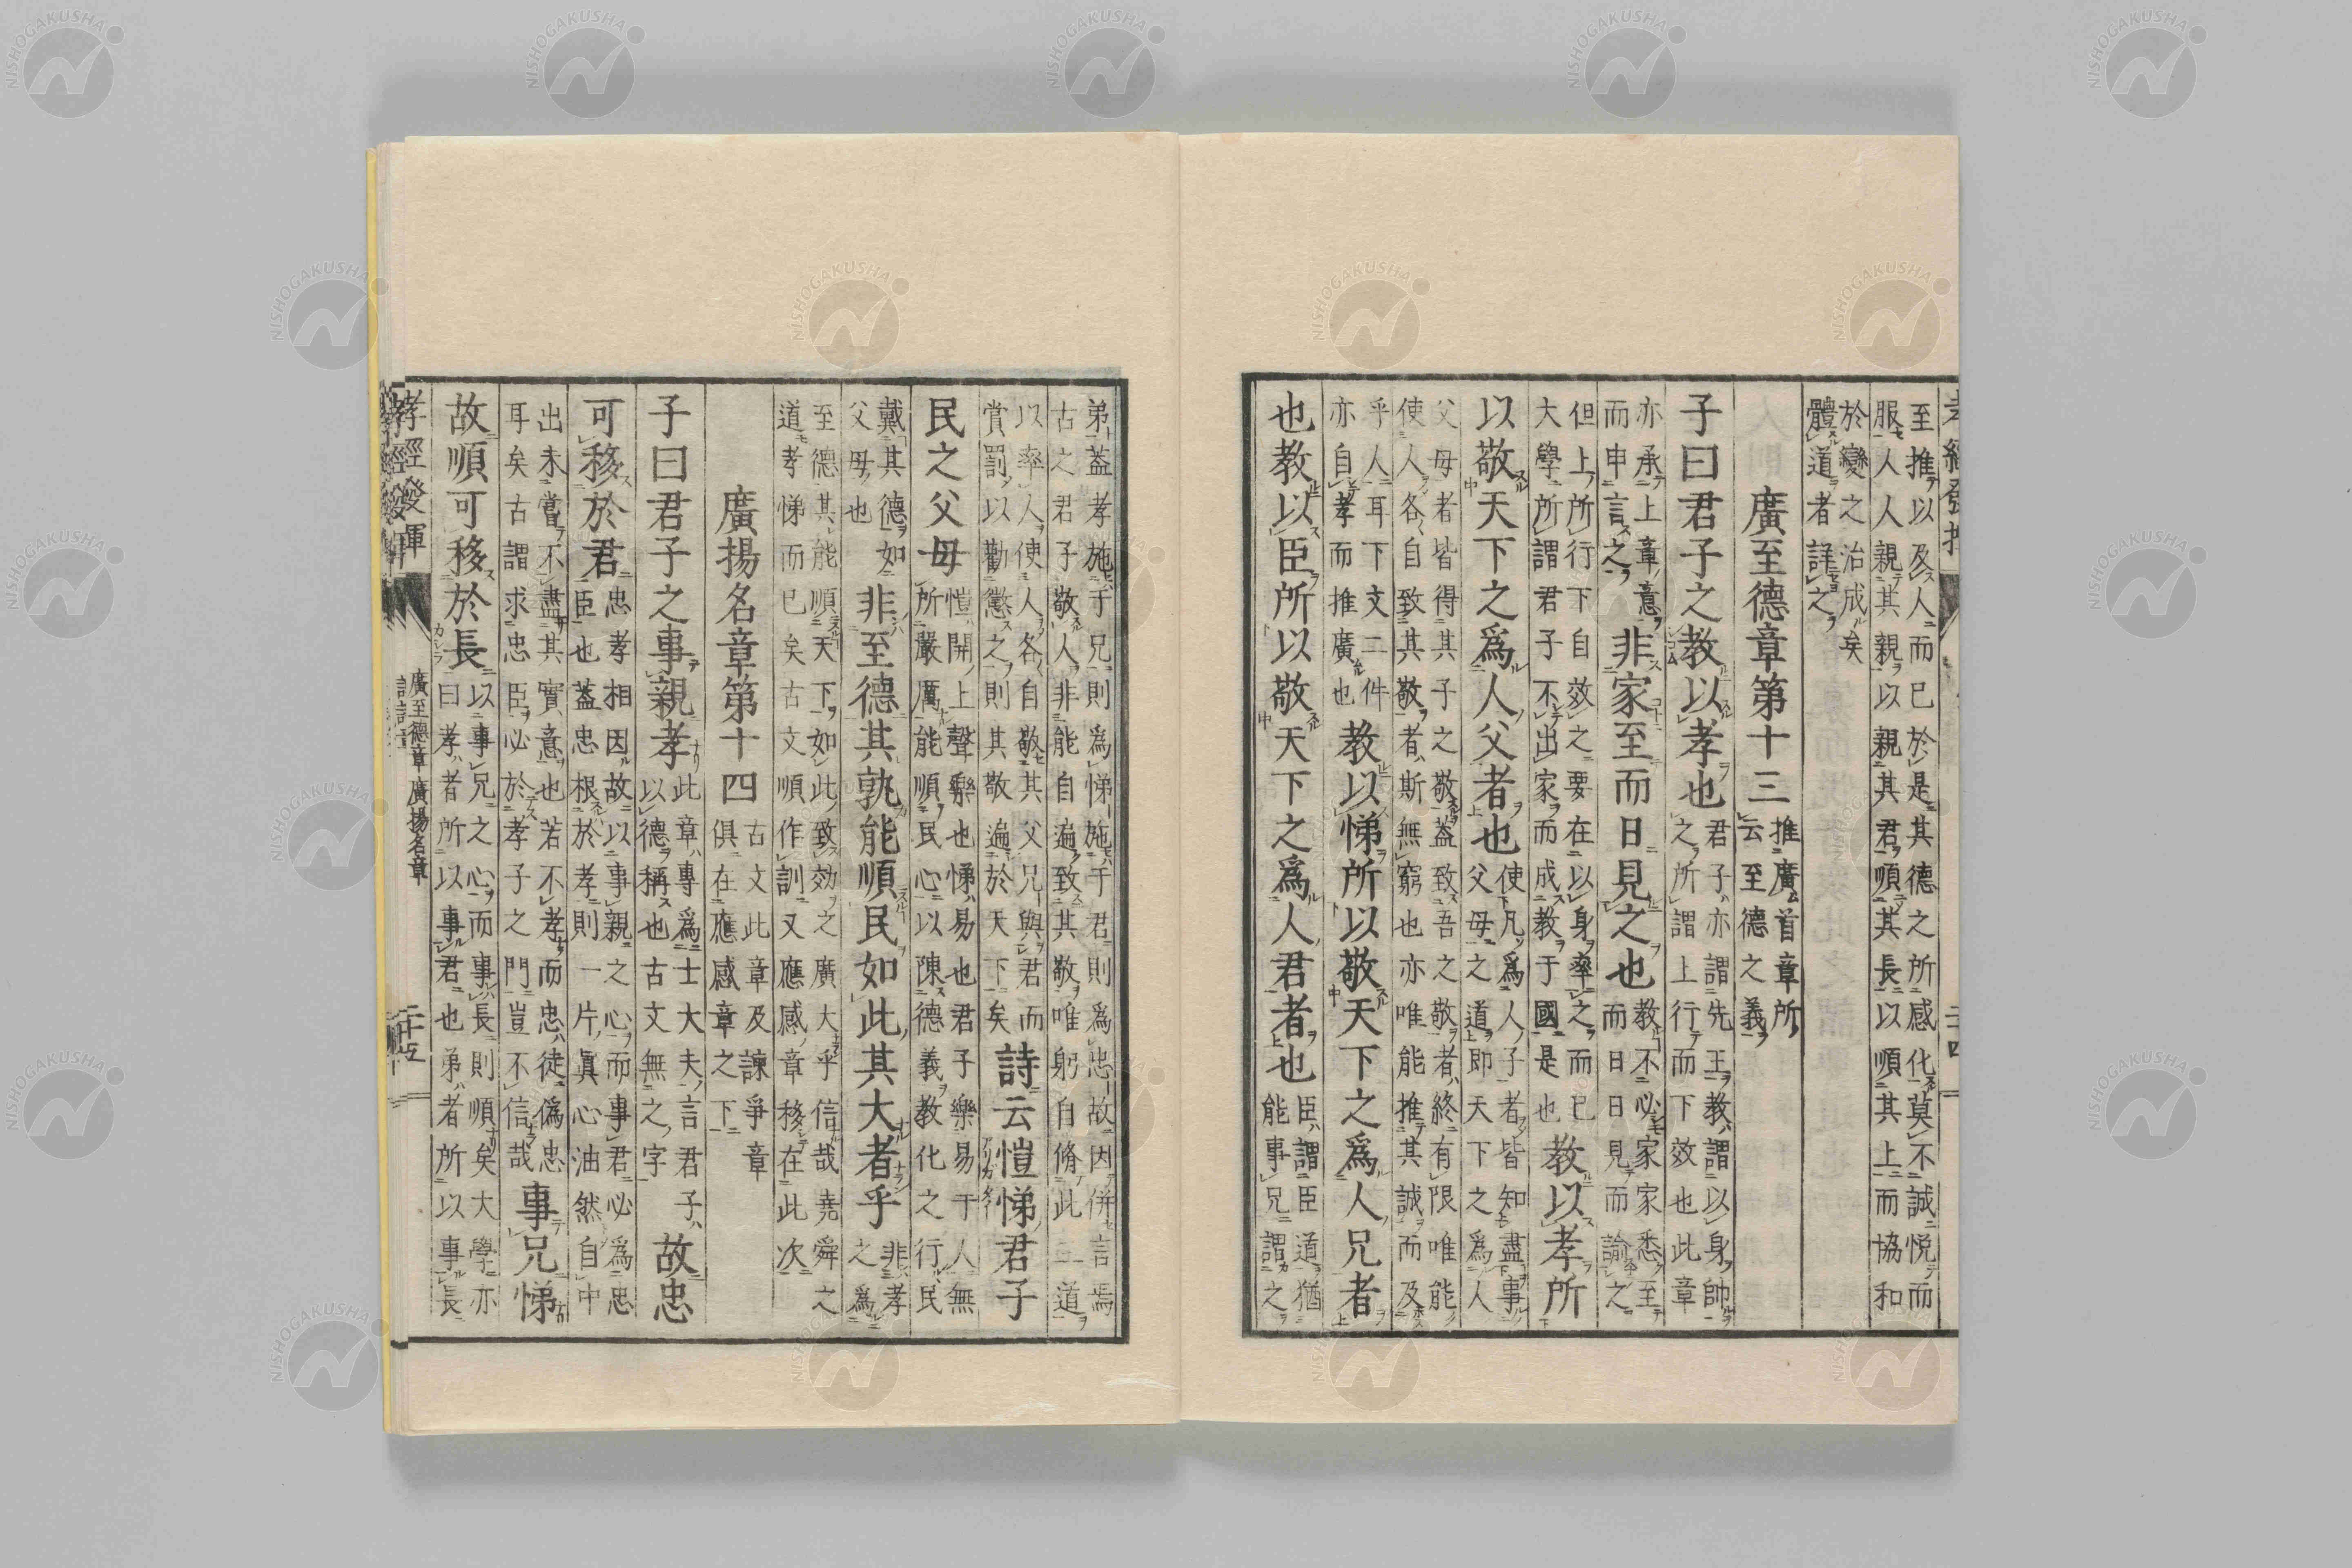 至推以及人而已於是其德之所感化莫不誠悅而
服人人親其親以親其君順其長以順其上而協和
於變之治成矣
體道者詳之
廣至德章第十三
推廣首章所
云至德之義
子曰君子之教以孝也
君子亦謂先王教謂以身帥
之所謂上行而下效也此章
亦承上章意
而申言之
非家至而日見之也
教不必家家悉至
而日日見而諭之
但上所行下自效之要在以身率之而已
大學所謂君子不出家而成教于國是也
教以孝所
以敬天下之爲人父者也
使凡爲人子者皆知盡事
父母之道即天下之爲人
父母者皆得其子之敬蓋致吾之敬者終有限唯能
使人各自致其敬者斯無窮也亦唯能推其誠而及
乎人耳下文二件
亦自孝而推廣也
教以悌所以敬天下之爲人兄者
也教以臣所以敬天下之爲人君者也
臣謂臣道猶
能事兄謂之
弟蓋孝施于兄則爲悌施于君則爲忠故因併言焉
古之君子敬人非能自遍致其敬唯躬自脩此二道
以率人使人各自敬其父兄與君而
賞罰以勸懲之則其敬遍於天下矣
詩云愷悌君子
民之父母
愷開上聲樂也悌易也君子樂易于人無
所嚴厲能順民心以陳德義教化之行民
戴其德如
父母也
非至德其孰能順民如此其大者乎
非孝
之爲
至德其能順天下如此致効之廣大乎信哉堯舜之
道孝悌而已矣古文順作訓又應感章移在此次
廣揚名章第十四
古文此章及諫爭章
俱在應感章之下
子曰君子之事親孝
此章專爲士大夫言君子
以德稱也古文無之字
故忠
可移於君
忠孝相因故以事親之心而事君必爲忠
臣也蓋忠根於孝則一片眞心油然自中
出未嘗不盡其實意也若不孝而忠徒僞忠
耳矣古謂求忠臣必於孝子之門豈不信哉
事兄悌
故順可移於長
以事兄之心而事長則順矣大學亦
曰孝者所以事君也弟者所以事長
孝經發揮
廣至德章 廣揚名章
二十五